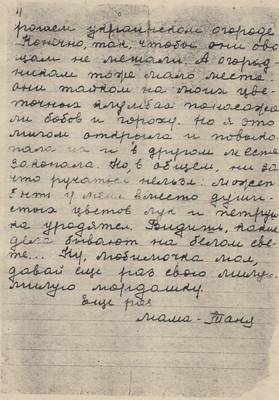 4
рошем украинском огороде
Конечно, так, чтобы они ово
щам не мешали. А огород-
никам тоже мало места
они тайком на моих цве-
точных клумбах понасажа
ли бобов и гороху. Но я это
мигом открыла и повыко-
пала их и в другом месте
закопала. Но, в общем, ни за
что ручаться нельзя: может
у меня вместо души-
стых цветов лук и петруш
ка уродятся. Видишь, какие
дела бывают на белом све-
те... Ну, любимочка моя,
давай еще раз свою милую-
милую мордашку.
Еще раз
мама - Таня